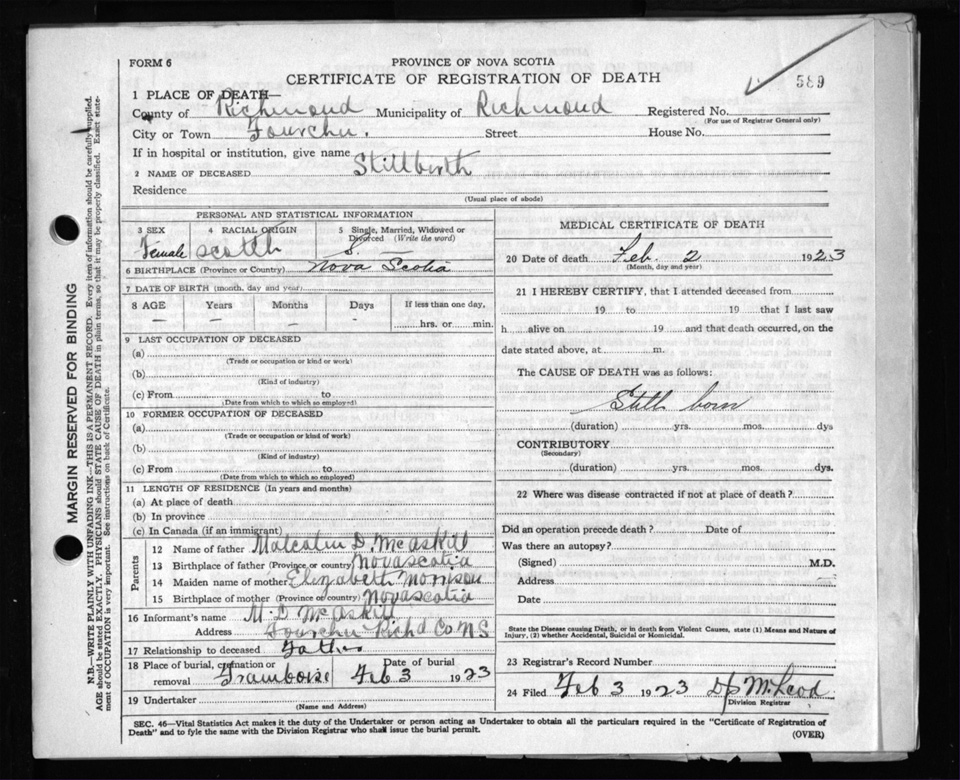 FORM 6
PROVINCE OF NOVA SCOTIA
CERTIFICATE OF REGISTRATION OF DEATH
589
1 PLACE OF DEATH—
County of Richmond Municipality of Richmond Registered No.
(For use of Registrar General only)
City or Town Fourchu. Street House No.
If in hospital or institution, give name
2 NAME OF DECEASED Stillbirth
Residence
(Usual place of abode)
PERSONAL AND STATISTICAL INFORMATION
3 SEX 4 RACIAL ORIGIN 5 Single, Married, Widowed or Divorced (Write the word)
Female Scotch S.
6 BIRTHPLACE (Province or Country) Nova Scotia
7 DATE OF BIRTH (month, day and year)
8 AGE Years Months Days If less than one day,
— — — — hrs. or min.
9 LAST OCCUPATION OF DECEASED
(a)
(Trade or occupation or kind or work)
(b)
(Kind of industry)
(c) From to
(Date from which to which so employed)
10 FORMER OCCUPATION OF DECEASED
(a)
(Trade or occupation or kind of work)
(b)
(Kind of industry)
(c) From to
(Date from which to which so employed)
11 LENGTH OF RESIDENCE (In years and months)
(a) At place of death
(b) In province
(c) In Canada (if an immigrant)
Parents
12 Name of father Malcolm D. McAskill
13 Birthplace of father (Province or country) Novascotia
14 Maiden name of mother Elizabeth Morrison
15 Birthplace of mother (Province or country) Novascotia
16 Informant's name M. D. McAskill
Address Fourchu Richd Co N S
17 Relationship to deceased Father
18 Place of burial, cremation or removal Framboise Date of burial Feb 3 1923
19 Undertaker
(Name and Address)
MEDICAL CERTIFICATE OF DEATH
20 Date of death Feb. 2 1923
(Month, day and year)
21 I HEREBY CERTIFY, that I attended deceased from
19 to 19 that I last saw
h alive on 19 and that death occurred, on the
date stated above, at m.
The CAUSE OF DEATH was as follows:
Still born
(duration) yrs. mos. dys
CONTRIBUTORY
(Secondary)
(duration) yrs. mos. dys.
22 Where was disease contracted if not at place of death?
Did an operation precede death? Date of
Was there an autopsy?
(Signed) M.D.
Address
Date
State the Disease causing Death, or in death from Violent Causes, state (1) Means and Nature of
Injury, (2) whether Accidental, Suicidal or Homicidal.
23 Registrar's Record Number
24 Filed Feb 3 1923 McLeod
Division Registrar
SEC. 46—Vital Statistics Act makes it the duty of the Undertaker or person acting as Undertaker to obtain all the particulars required in the "Certificate of Registration of
Death" and to fyle the same with the Division Registrar who shall issue the burial permit.
(OVER)
MARGIN RESERVED FOR BINDING
N.B.—WRITE PLAINLY WITH UNFADING INK—THIS IS A PERMANENT RECORD. Every item of information should be carefully supplied.
AGE should be stated EXACTLY. PHYSICIANS should STATE CAUSE OF DEATH in plain terms, so that it may be properly classified. Exact state-
ment of OCCUPATION is very important. See instructions on back of Certificate.